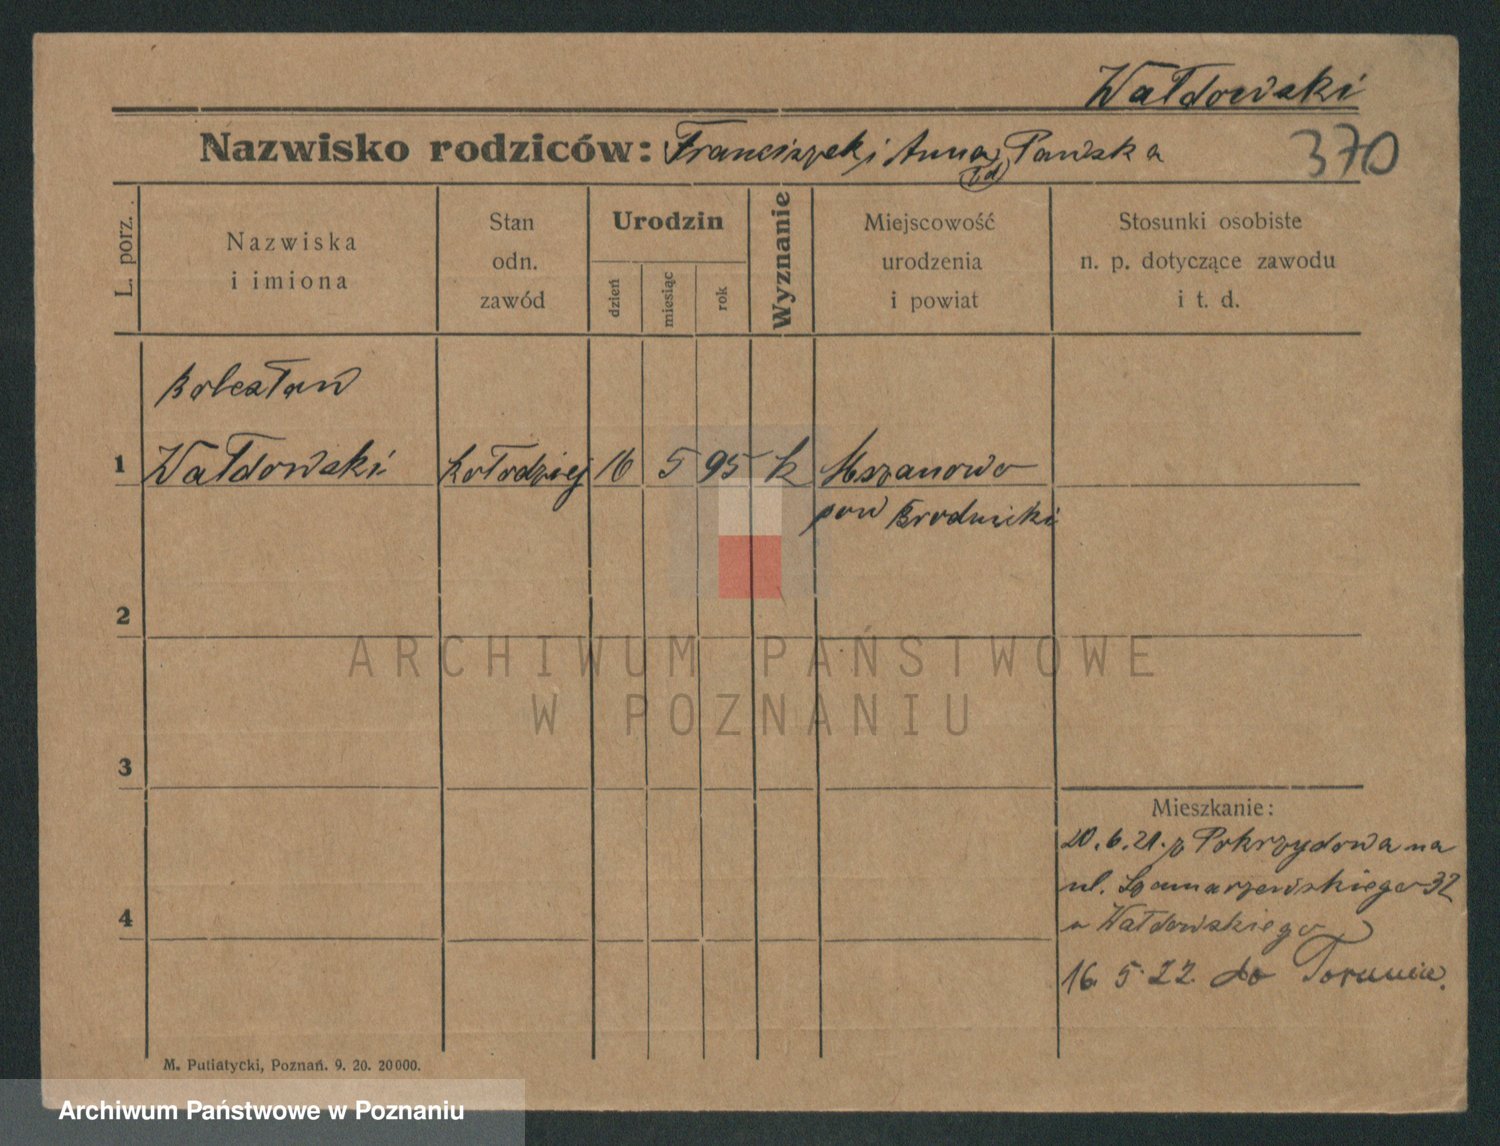 Wałdowski
Nazwisko rodziców: Franciszek i Anna Pawska
370
L. porz.
Nazwiska
i imiona
Stan
odn.
zawód
Urodzin
dzień
miesiąc
rok
Wyznanie
Miejscowość
urodzenia
i powiat
Stosunki osobiste
n. p. dotyczące zawodu
i t. d.
Bolesław
1 Wałdowski kołodziej 16 5 95 k Mszanowo
pow Brodnicki
2
ARCHIWUM PAŃSTWOWE
W POZNANIU
3
Mieszkanie:
20.6.21. z Pokrzydowa na
ul. 32
u Wałdowskiego
4
16 5 22 do Torunia.
M. Putiatycki, Poznań. 9. 20. 20000.
Archiwum Państwowe w Poznaniu